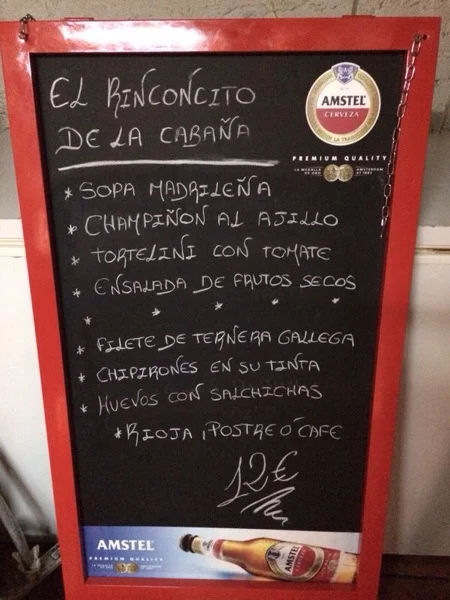 EL RINCONCITO
DE LA CABAÑA
AMSTEL
CERVEZA
PREMIUM QUALITY
* SOPA MADRILEÑA
* CHAMPIÑON AL AJILLO
* TORTELINI CON TOMATE
* ENSALADA DE FRUTOS SECOS
* * * * *
* FILETE DE TERNERA GALLEGA
* CHIPIRONES EN SU TINTA
* HUEVOS CON SALCHICHAS
* RIOJA , POSTRE Ó CAFE
12€
AMSTEL
PREMIUM QUALITY
AMSTEL